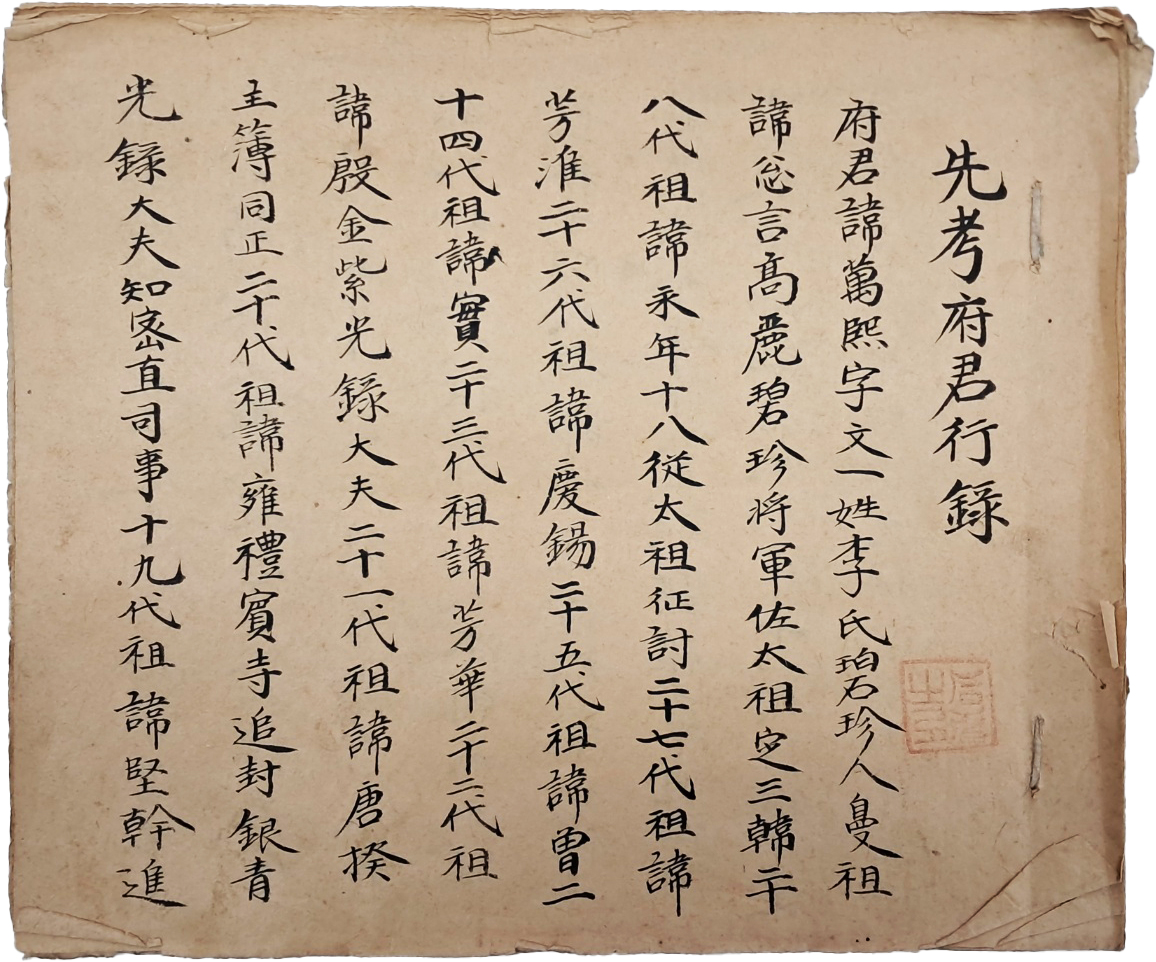 先考府君行錄
府君諱萬熙字文一姓李氏碧珍人鼻祖
諱忩言髙麗碧珍將軍佐太祖定三韓二十
八代祖諱永年十八從太祖征討二十七代祖諱
芳淮二十六代祖諱慶錫二十五代祖諱曾二
十四代祖諱實二十三代祖諱芳華二十二代祖
諱殷金紫光錄大夫二十一代祖諱唐揆
主簿同正二十代祖諱雍禮賓寺追封銀青
光錄大夫知密直司事十九代祖諱堅幹進